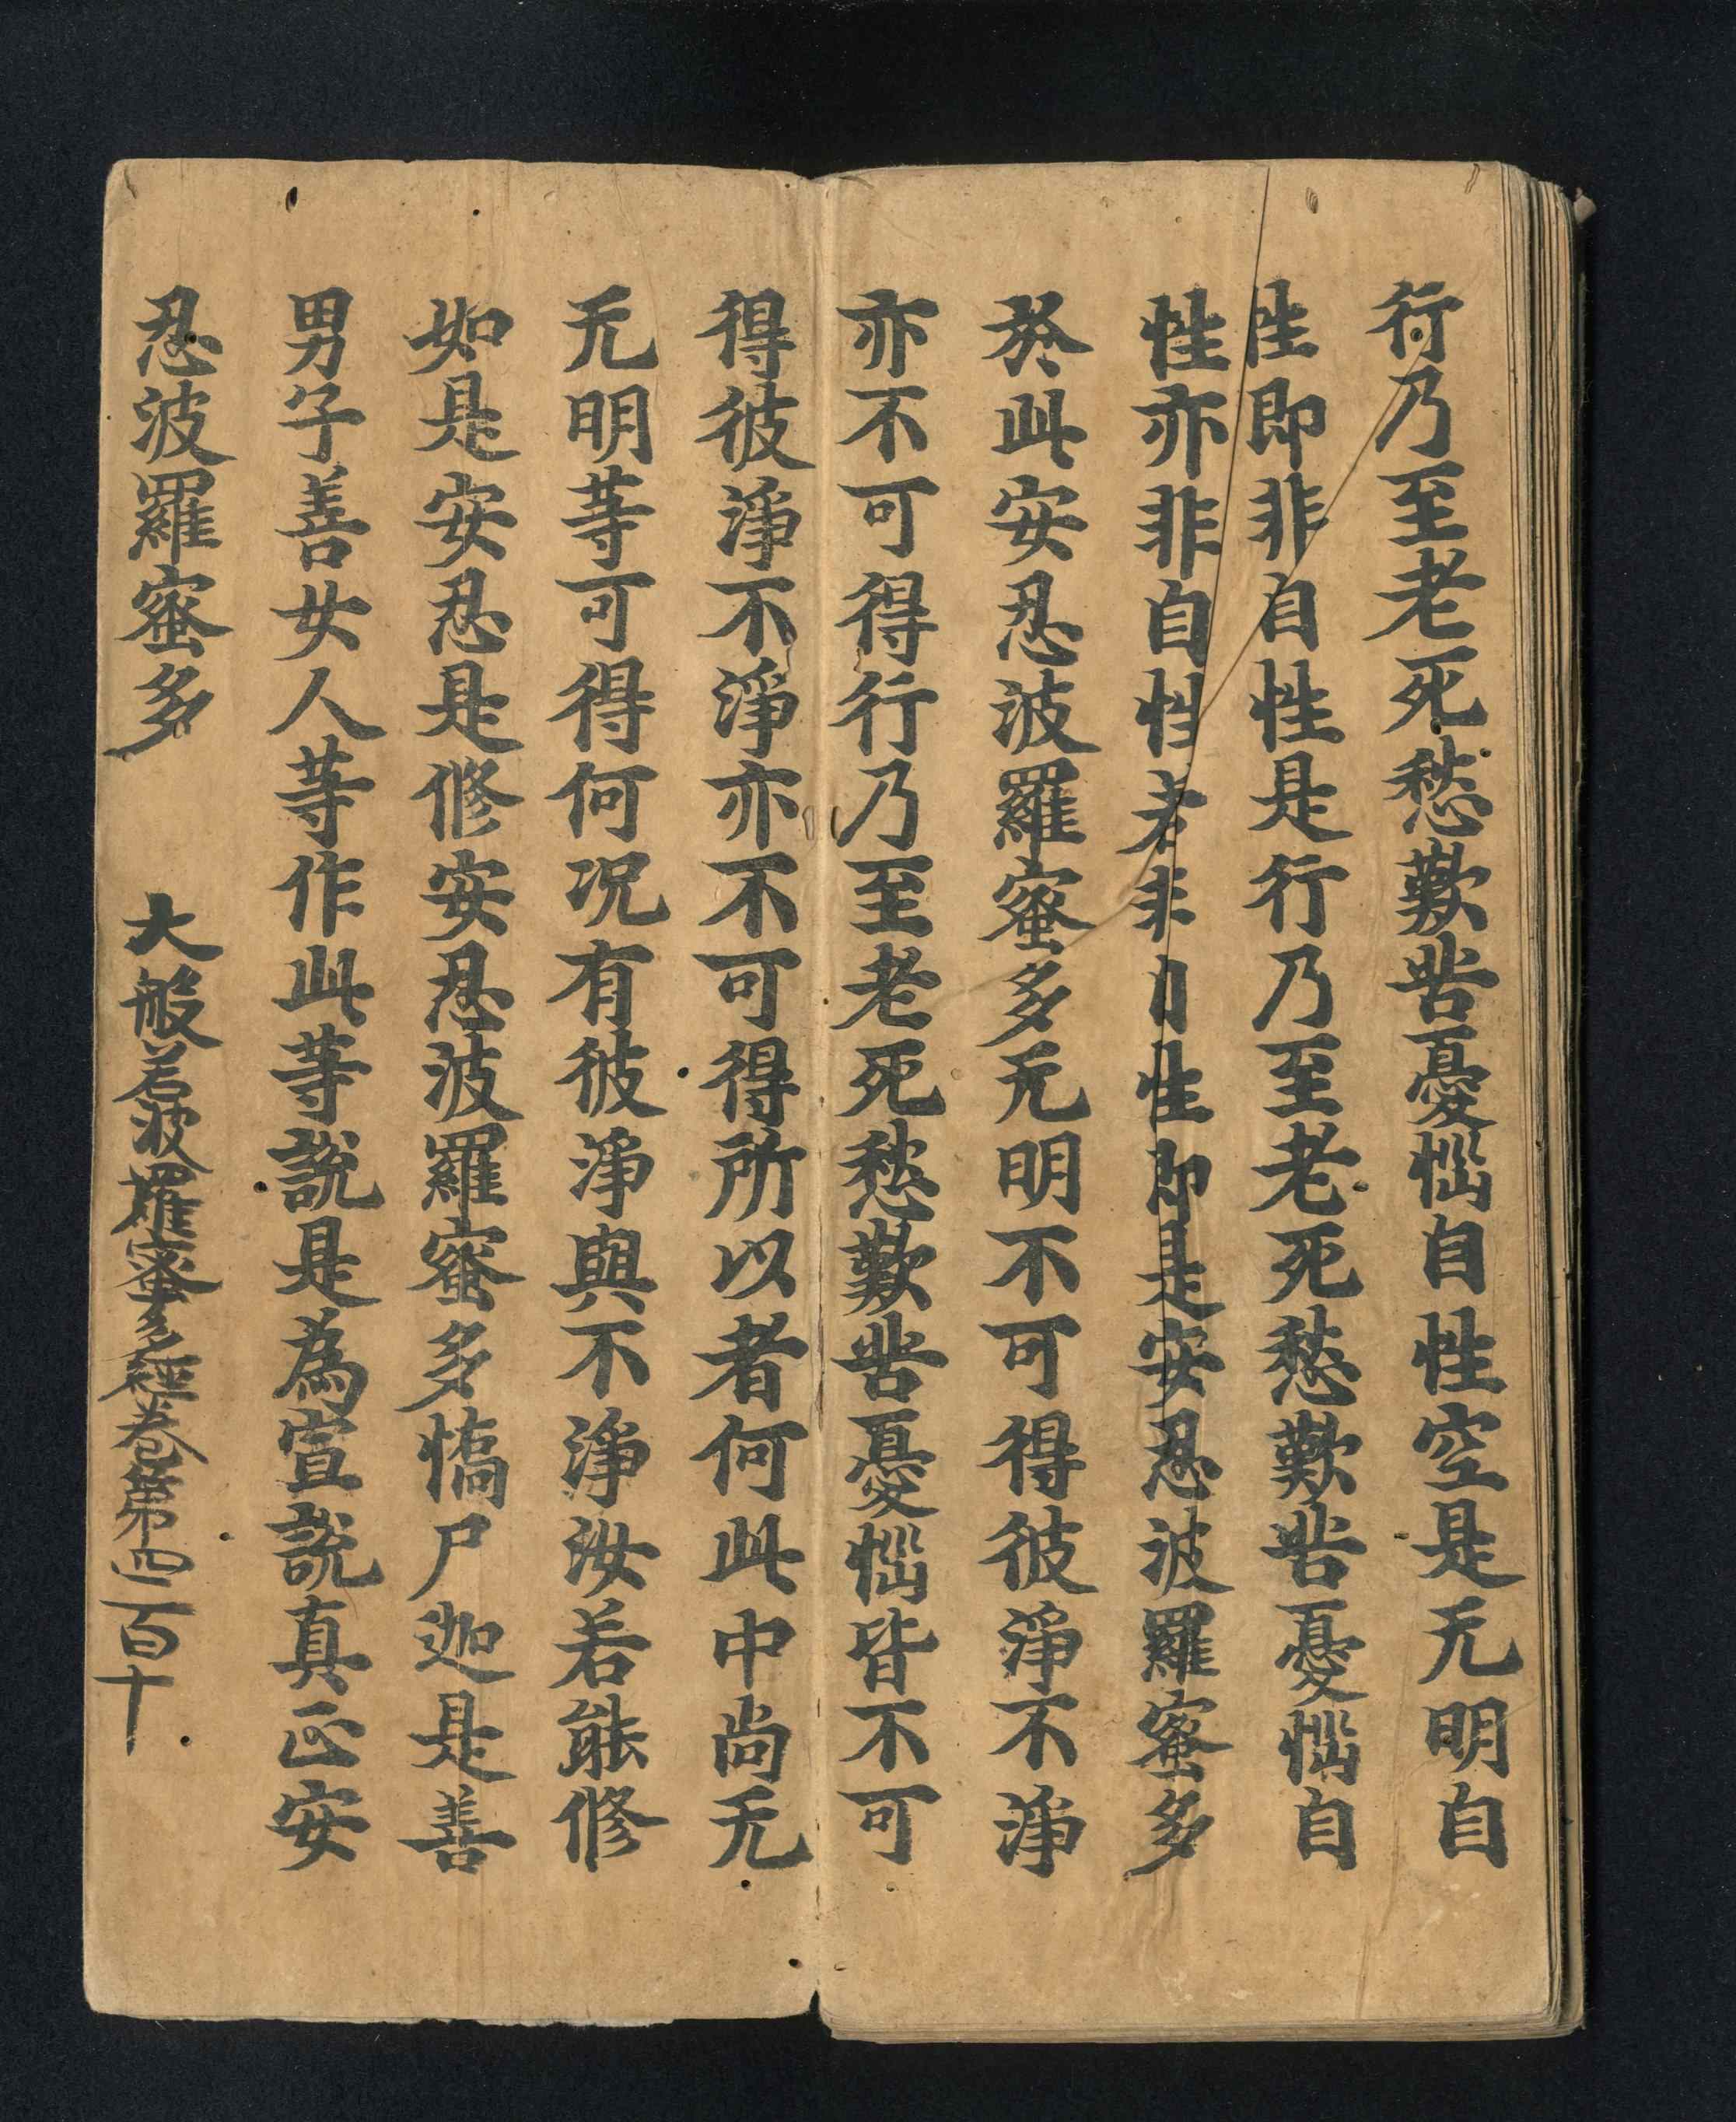 行乃至老死愁歎苦憂惱自性空是无明自
性即非自性是行乃至老死愁歎苦憂惱自
性亦非自性若非自性即是安忍波羅蜜多
於此安忍波羅蜜多无明不可得彼淨不淨
亦不可得行乃至老死愁歎苦憂惱皆不可
得彼淨不淨亦不可得所以者何此中尚无
无明等可得何况有彼淨與不淨汝若能修
如是安忍是修安忍波羅蜜多憍尸迦是善
男子善女人等作此等說是為宣說真正安
忍波羅蜜多 大般若波羅蜜多經卷第四百十